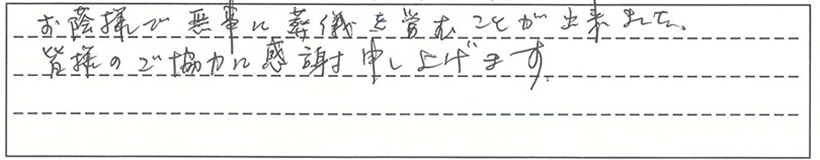 お蔭様で無事に葬儀を営むことが出来ました。
皆様のご協力に感謝申し上げます。